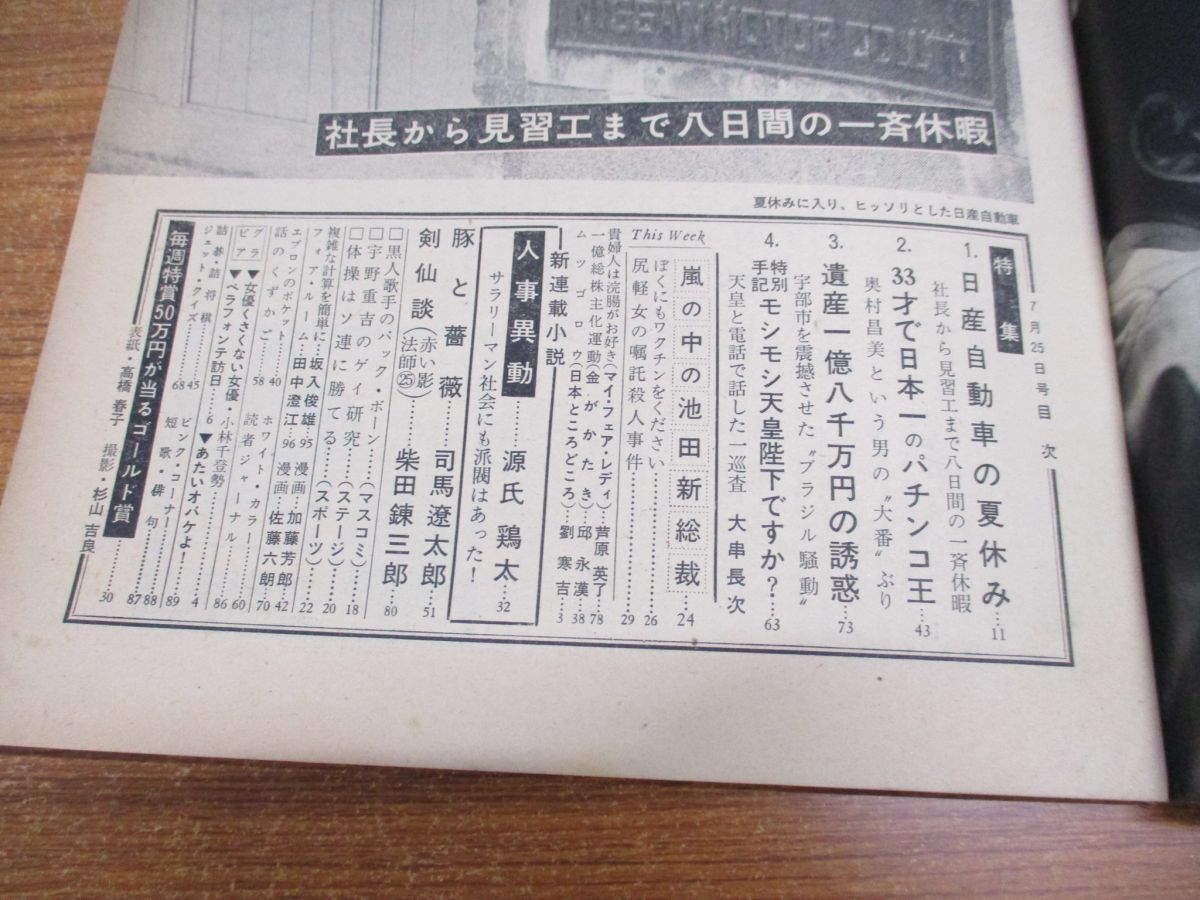 NISSAN MOTOR CO., LTD
社長から見習工まで八日間の一斉休暇
夏休みに入り、ヒッソリとした日産自動車
7月25日号目次
特集
1. 日産自動車の夏休み…11
社長から見習工まで八日間の一斉休暇
2. 33才で日本一のパチンコ王…43
奥村昌美という男の〝大番〟ぶり
3. 遺産一億八千万円の誘惑…73
宇部市を震撼させた〝ブラジル騒動〟
4. 特別手記 モシモシ天皇陛下ですか?…63
天皇と電話で話した一巡査 大串長次
This Week
嵐の中の池田新総裁…24
ぼくにもワクチンをください…26
尻軽女の嘱託殺人事件…29
貴婦人は浣腸がお好き(マイ・フェア・レディ)…芦原英了…78
一億総株主化運動(金がかたき)…邱永漢…38
ムツゴロウ(日本ところどころ)…劉寒吉…3
新連載小説
人事異動……源氏鶏太…32
サラリーマン社会にも派閥はあった!
豚と薔薇……司馬遼太郎…51
剣仙談(赤い影法師㉕)……柴田錬三郎…80
□黒人歌手のバック・ボーン……(マスコミ)…18
□宇野重吉のゲイ研究……(ステージ)…20
□体操はソ連に勝てる……(スポーツ)…22
複雑な計算を簡単に…坂入俊雄…95 漫画…加藤芳郎…42
フィア・ルーム…田中澄江…96 漫画…佐藤六朗…70
エプロンのポケット…40 ホワイト・カラー…60
話のくずかご…58 読者ジャーナル…86
グラビア
▼女優くさくない女優・小林千登勢…4
▼ベラフォンテ訪日…6 ▼あたいオバケよ!…89
詰碁・詰将棋…45 ピンク・コーナー…88
ジェット・クイズ…68 短歌・俳句…87
毎週特賞50万円が当るゴールド賞…30
表紙・高橋春子 撮影・杉山吉良